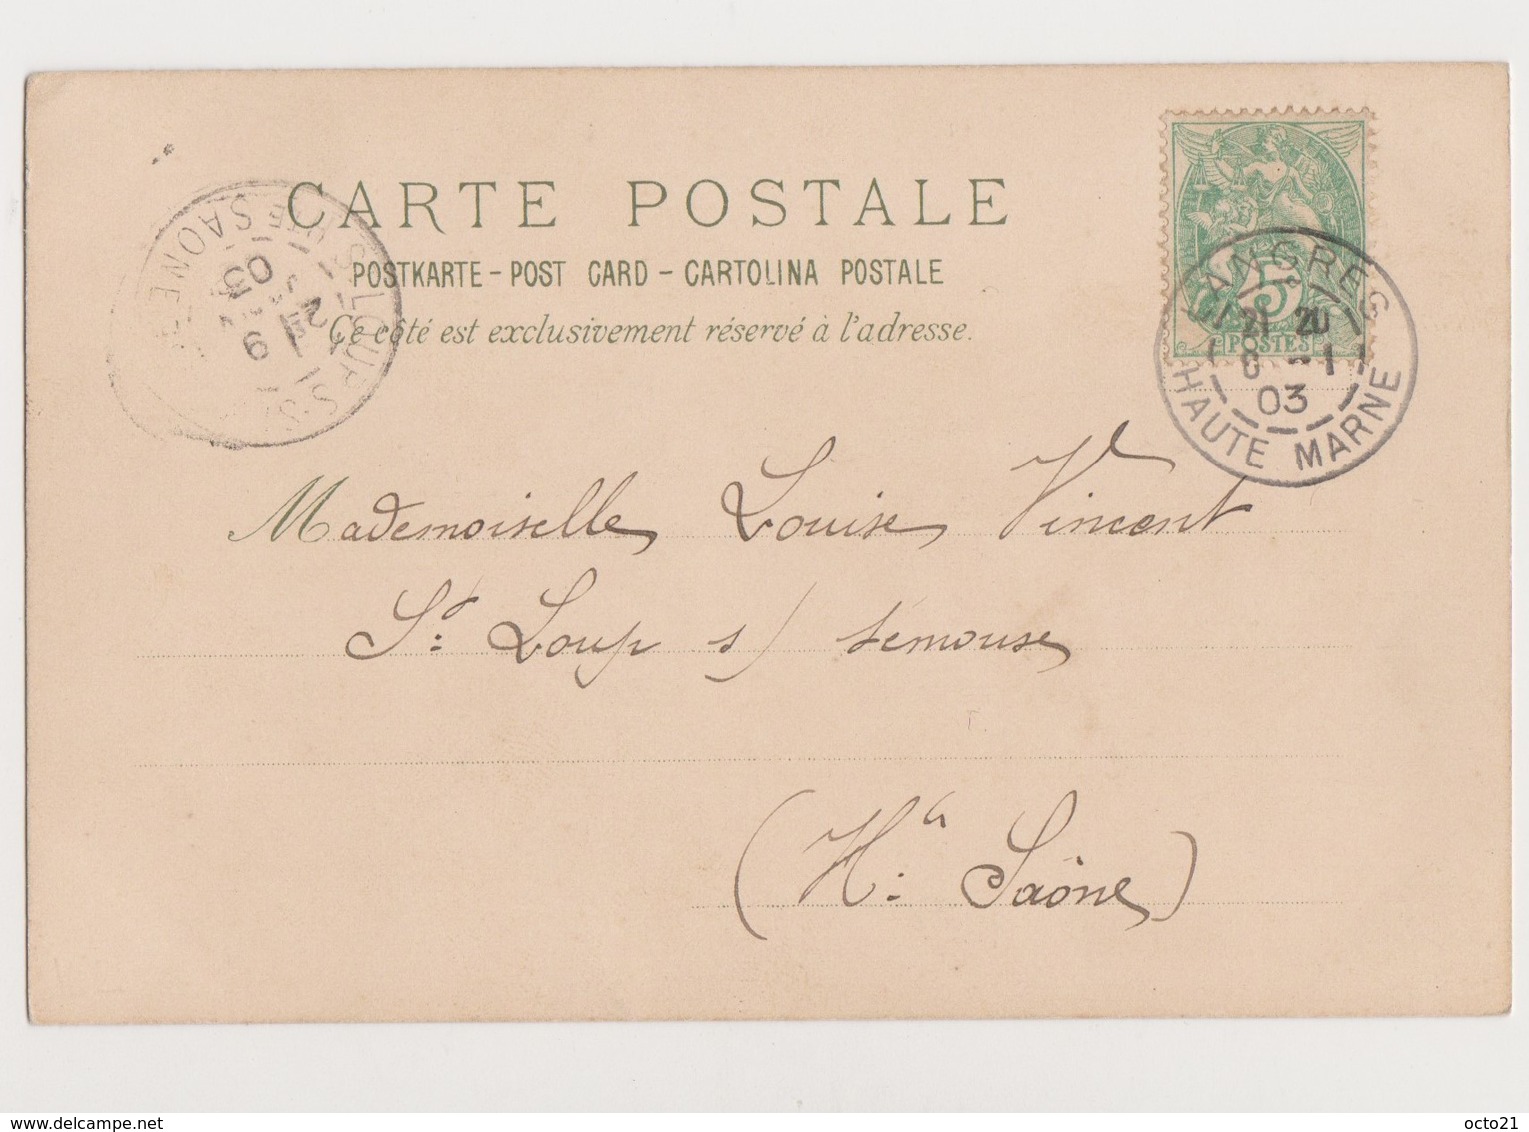 CARTE POSTALE
POSTKARTE - POST CARD - CARTOLINA POSTALE
Ce côté est exclusivement réservé à l'adresse.
5
POSTES
LANGRES
21 20
8 - 1
03
HAUTE MARNE
ST LOUP S.
HTE SAONE
9
03
Mademoiselle Louise Vincent
St: Loup s/ Sémouse
(Hte: Saône)
delcampe.net
octo21